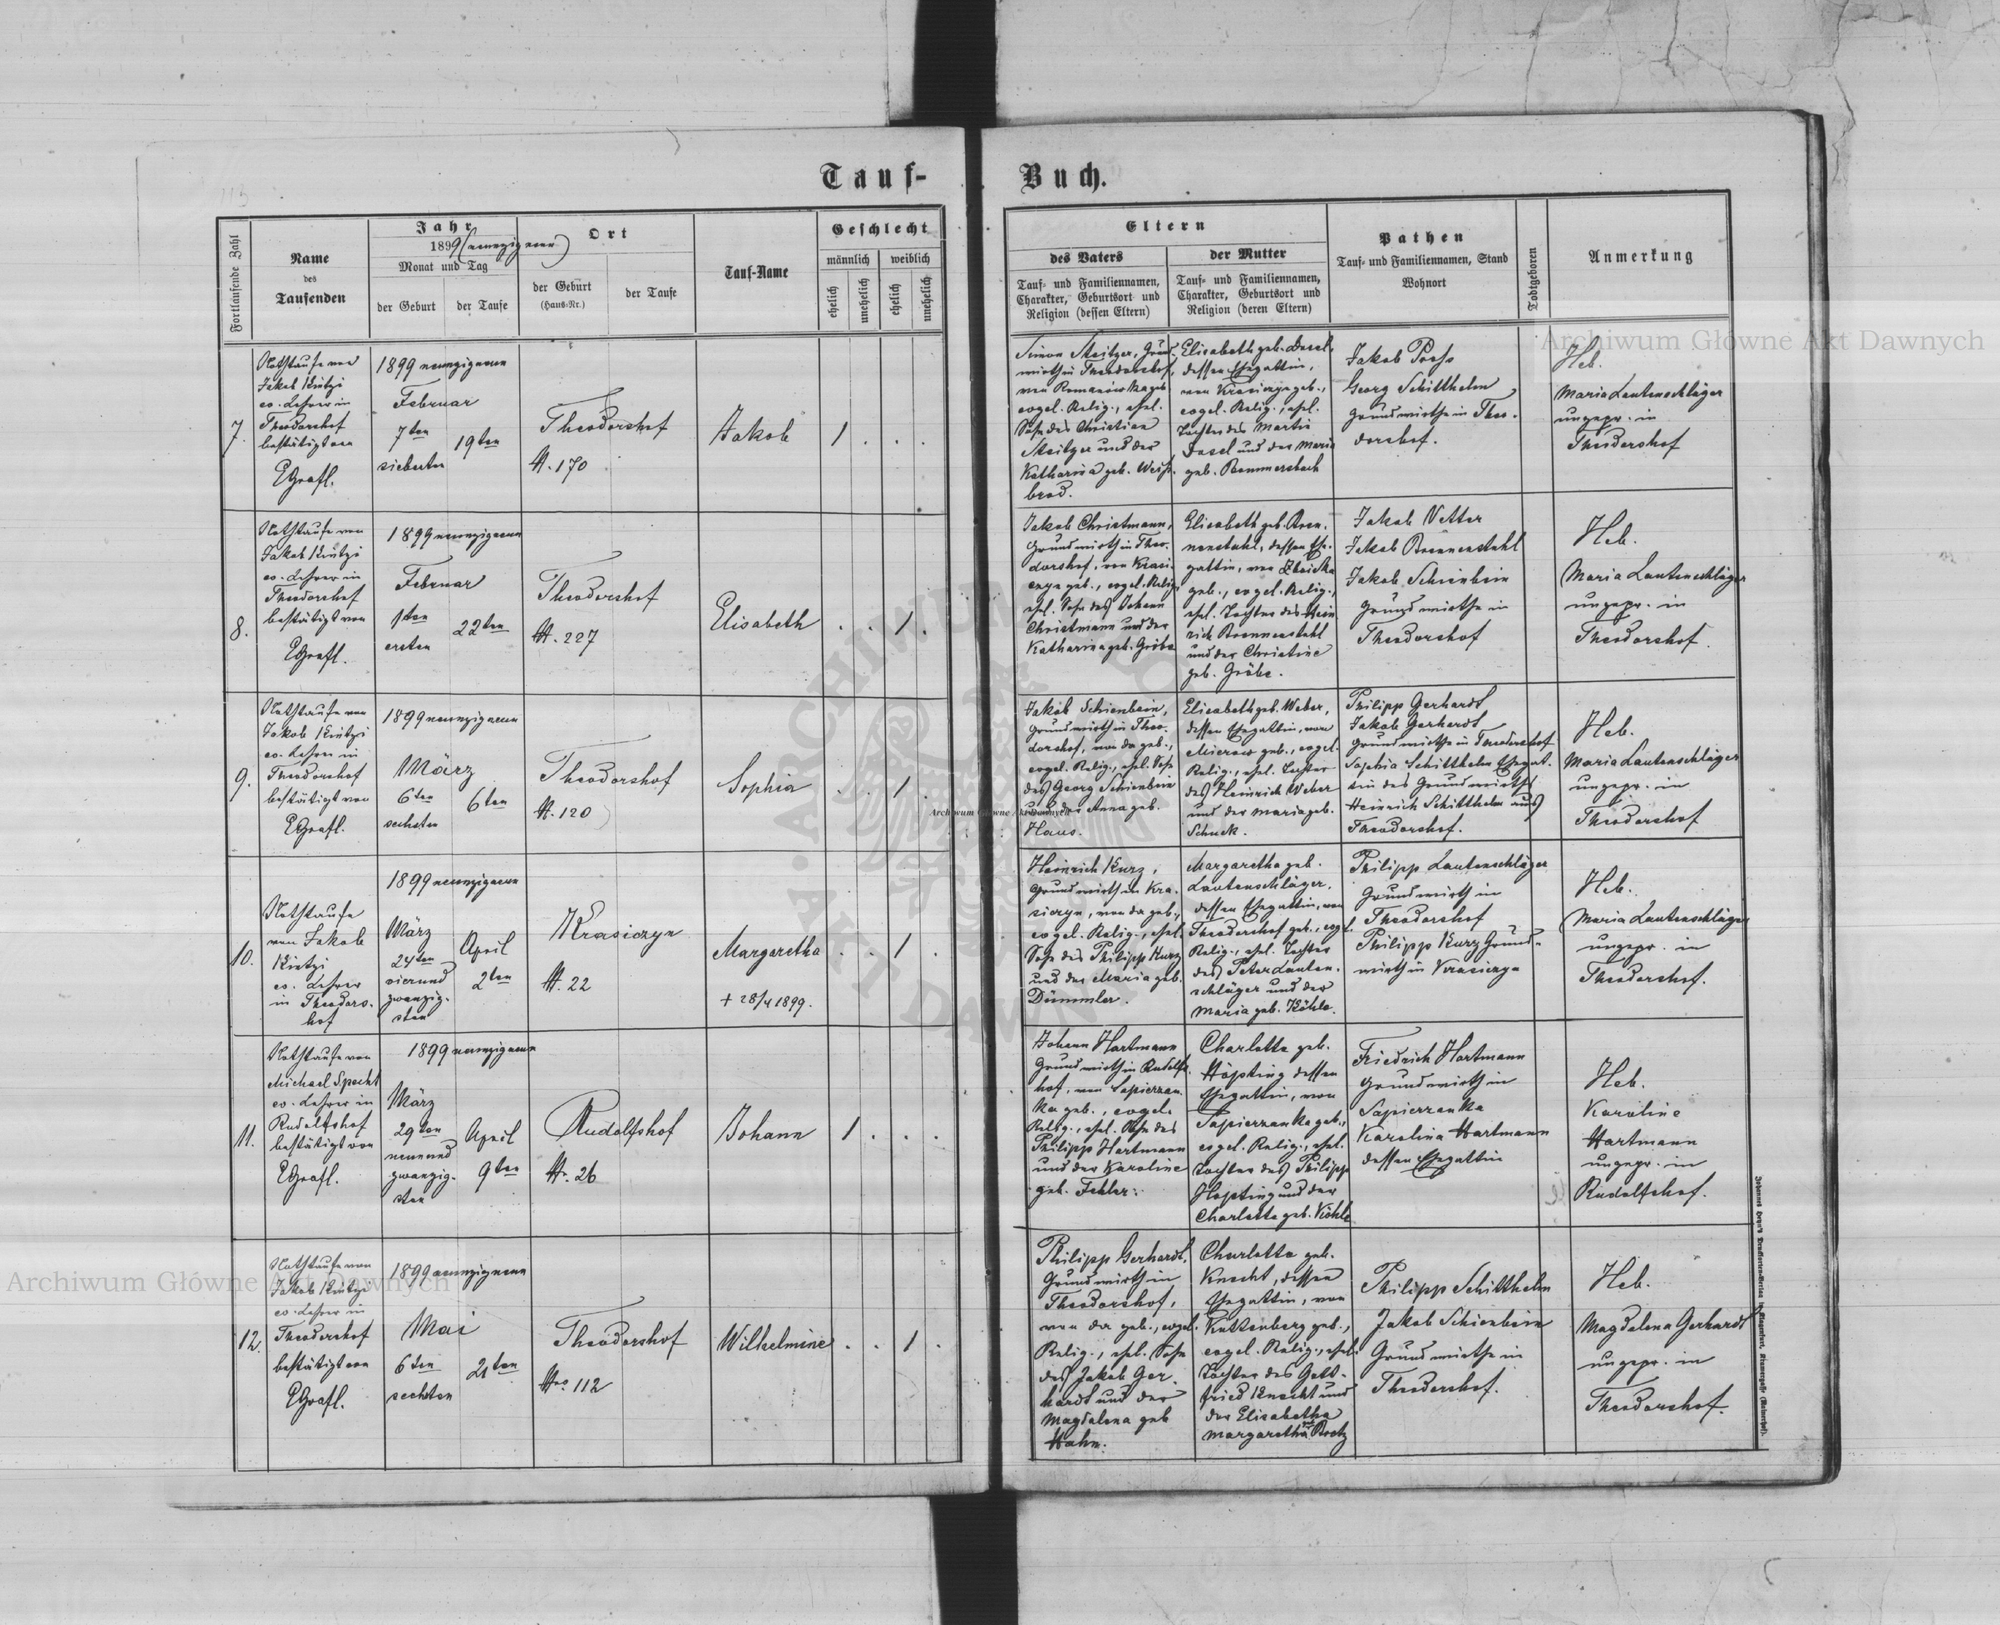 Tauf-
Buch.
Fortlaufende Zahl
Name
des
Taufenden
Jahr
1899 (neunzigneun)
Monat und Tag
der Geburt
der Taufe
Ort
der Geburt
(Haus-Nr.)
der Taufe
Tauf-Name
Geschlecht
männlich
weiblich
ehelich
unehelich
ehelich
unehelich
Eltern
des Vaters
Tauf- und Familiennamen,
Charakter, Geburtsort und
Religion (dessen Eltern)
der Mutter
Tauf- und Familiennamen,
Charakter, Geburtsort und
Religion (deren Eltern)
Pathen
Tauf- und Familiennamen, Stand
Wohnort
Todtgeboren
Anmerkung
7.
Nothtaufe von
Jakob
ev. Lehrer in
Theodorshof
bestätigt von
1899 neunzigneun
Februar
7ten
siebenten
19ten
Theodorshof
N. 170
Jakob
1 . . .
Simon
wirth in Theodorshof,
von Romanówka geb.
evgel. Relig., ehel.
Sohn des Christian
und der
Katharina geb. Weiß-
brod.
Elisabeth geb.
dessen Ehegattin,
von Krasiczyn geb.,
evgel. Relig., ehel.
Tochter des Martin
und der Maria
geb.
Jakob
Georg Schitthelm
Grundwirthe in Theo-
dorshof.
Heb.
Maria Lautenschläger
ungepr. in
Theodorshof
8.
Nothtaufe von
Jakob
ev. Lehrer in
Theodorshof
bestätigt von
1899 neunzigneun
Februar
1ten
ersten
22ten
Theodorshof
N. 227
Elisabeth
. . 1 .
Jakob Christmann,
Grundwirth in Theo-
dorshof, von Krasi-
czyn geb., evgel. Relig.,
ehel. Sohn des Johann
Christmann und der
Katharina geb. Gröbe
Elisabeth geb. Bren-
nenstuhl, dessen Ehe-
gattin, von
geb., evgel. Relig.,
ehel. Tochter des Hein-
rich Brennenstuhl
und der Christine
geb. Gröbe.
Jakob Vetter
Jakob Brennenstuhl
Jakob Schienbein
Grundwirthe in
Theodorshof
Heb.
Maria Lautenschläger
ungepr. in
Theodorshof.
9.
Nothtaufe von
Jakob
ev. Lehrer in
Theodorshof
bestätigt von
1899 neunzigneun
März
6ten
sechsten
6ten
Theodorshof
N. 120
Sophia
. . 1 .
Jakob Schienbein,
Grundwirth in Theo-
dorshof, von da geb.,
evgel. Relig., ehel. Sohn
des Georg Schienbein
und der Anna geb.
Haus.
Elisabeth geb. Weber,
dessen Ehegattin, von
Mierow geb., evgel.
Relig., ehel. Tochter
des Heinrich Weber
und der Maria geb.
Schuck.
Philipp Gerhardt
Jakob Gerhardt
Grundwirthe in Theodorshof
Sophia Schitthelm Ehegat-
tin des Grundwirths
Heinrich Schitthelm aus
Theodorshof.
Heb.
Maria Lautenschläger
ungepr. in
Theodorshof
10.
Nothtaufe
von Jakob
ev. Lehrer
in Theodors-
hof
1899 neunzigneun
März
24ten
vierund
zwanzig-
sten
April
2ten
Krasiczyn
N. 22
Margaretha
+ 28/4 1899.
. . 1 .
Heinrich Kurz,
Grundwirth in Kra-
siczyn, von da geb.,
evgel. Relig., ehel.
Sohn des Philipp Kurz
und der Maria geb.
Dümmler.
Margaretha geb.
Lautenschläger,
dessen Ehegattin, von
Theodorshof geb., evgl.
Relig., ehel. Tochter
des Peter Lauten-
schläger und der
Maria geb. Köhle.
Philipp Lautenschläger
Grundwirth in
Theodorshof
Philipp Kurz Grund-
wirth in Krasiczyn
Heb.
Maria Lautenschläger
ungepr. in
Theodorshof.
11.
Nothtaufe von
Michael Specht
ev. Lehrer in
Rudolfshof
bestätigt von
1899 neunzigneun
März
29ten
neunund
zwanzig-
sten
April
9ten
Rudolfshof
Nr. 26
Johann
1 . . .
Johann Hartmann
Grundwirth in Rudolfs-
hof, von Sapiezan-
ka geb., evgel.
Relig., ehel. Sohn des
Philipp Hartmann
und der Karoline
geb. Fehler.
Charlotte geb.
Höpting dessen
Ehegattin, von
Sapiezanka geb.,
evgel. Relig., ehel.
Tochter des Philipp
Hopting und der
Charlotte geb. Köhle
Friedrich Hartmann
Grundwirth in
Sapiezanka
Karolina Hartmann
dessen Ehegattin
Heb.
Karoline
Hartmann
ungepr. in
Rudolfshof.
12.
Nothtaufe von
Jakob
ev. Lehrer in
Theodorshof
bestätigt von
1899 neunzigneun
Mai
6ten
sechsten
21ten
Theodorshof
Nro 112
Wilhelmine
. . 1 .
Philipp Gerhardt,
Grundwirth in
Theodorshof,
von da geb., evgel.
Relig., ehel. Sohn
des Jakob Ger-
hardt und der
Magdalena geb
Hahn.
Charlotte geb.
Knecht, dessen
Ehegattin, von
Kuttenberg geb.,
evgel. Relig., ehel.
Tochter des Gott-
fried Knecht und
der Elisabetha
Margaretha
Philipp Schitthelm
Jakob Schienbein
Grundwirthe in
Theodorshof.
Heb.
Magdalena Gerhardt
ungepr. in
Theodorshof.
Archiwum Główne Akt Dawnych
Archiwum Główne Akt Dawnych
Archiwum Główne Akt Dawnych